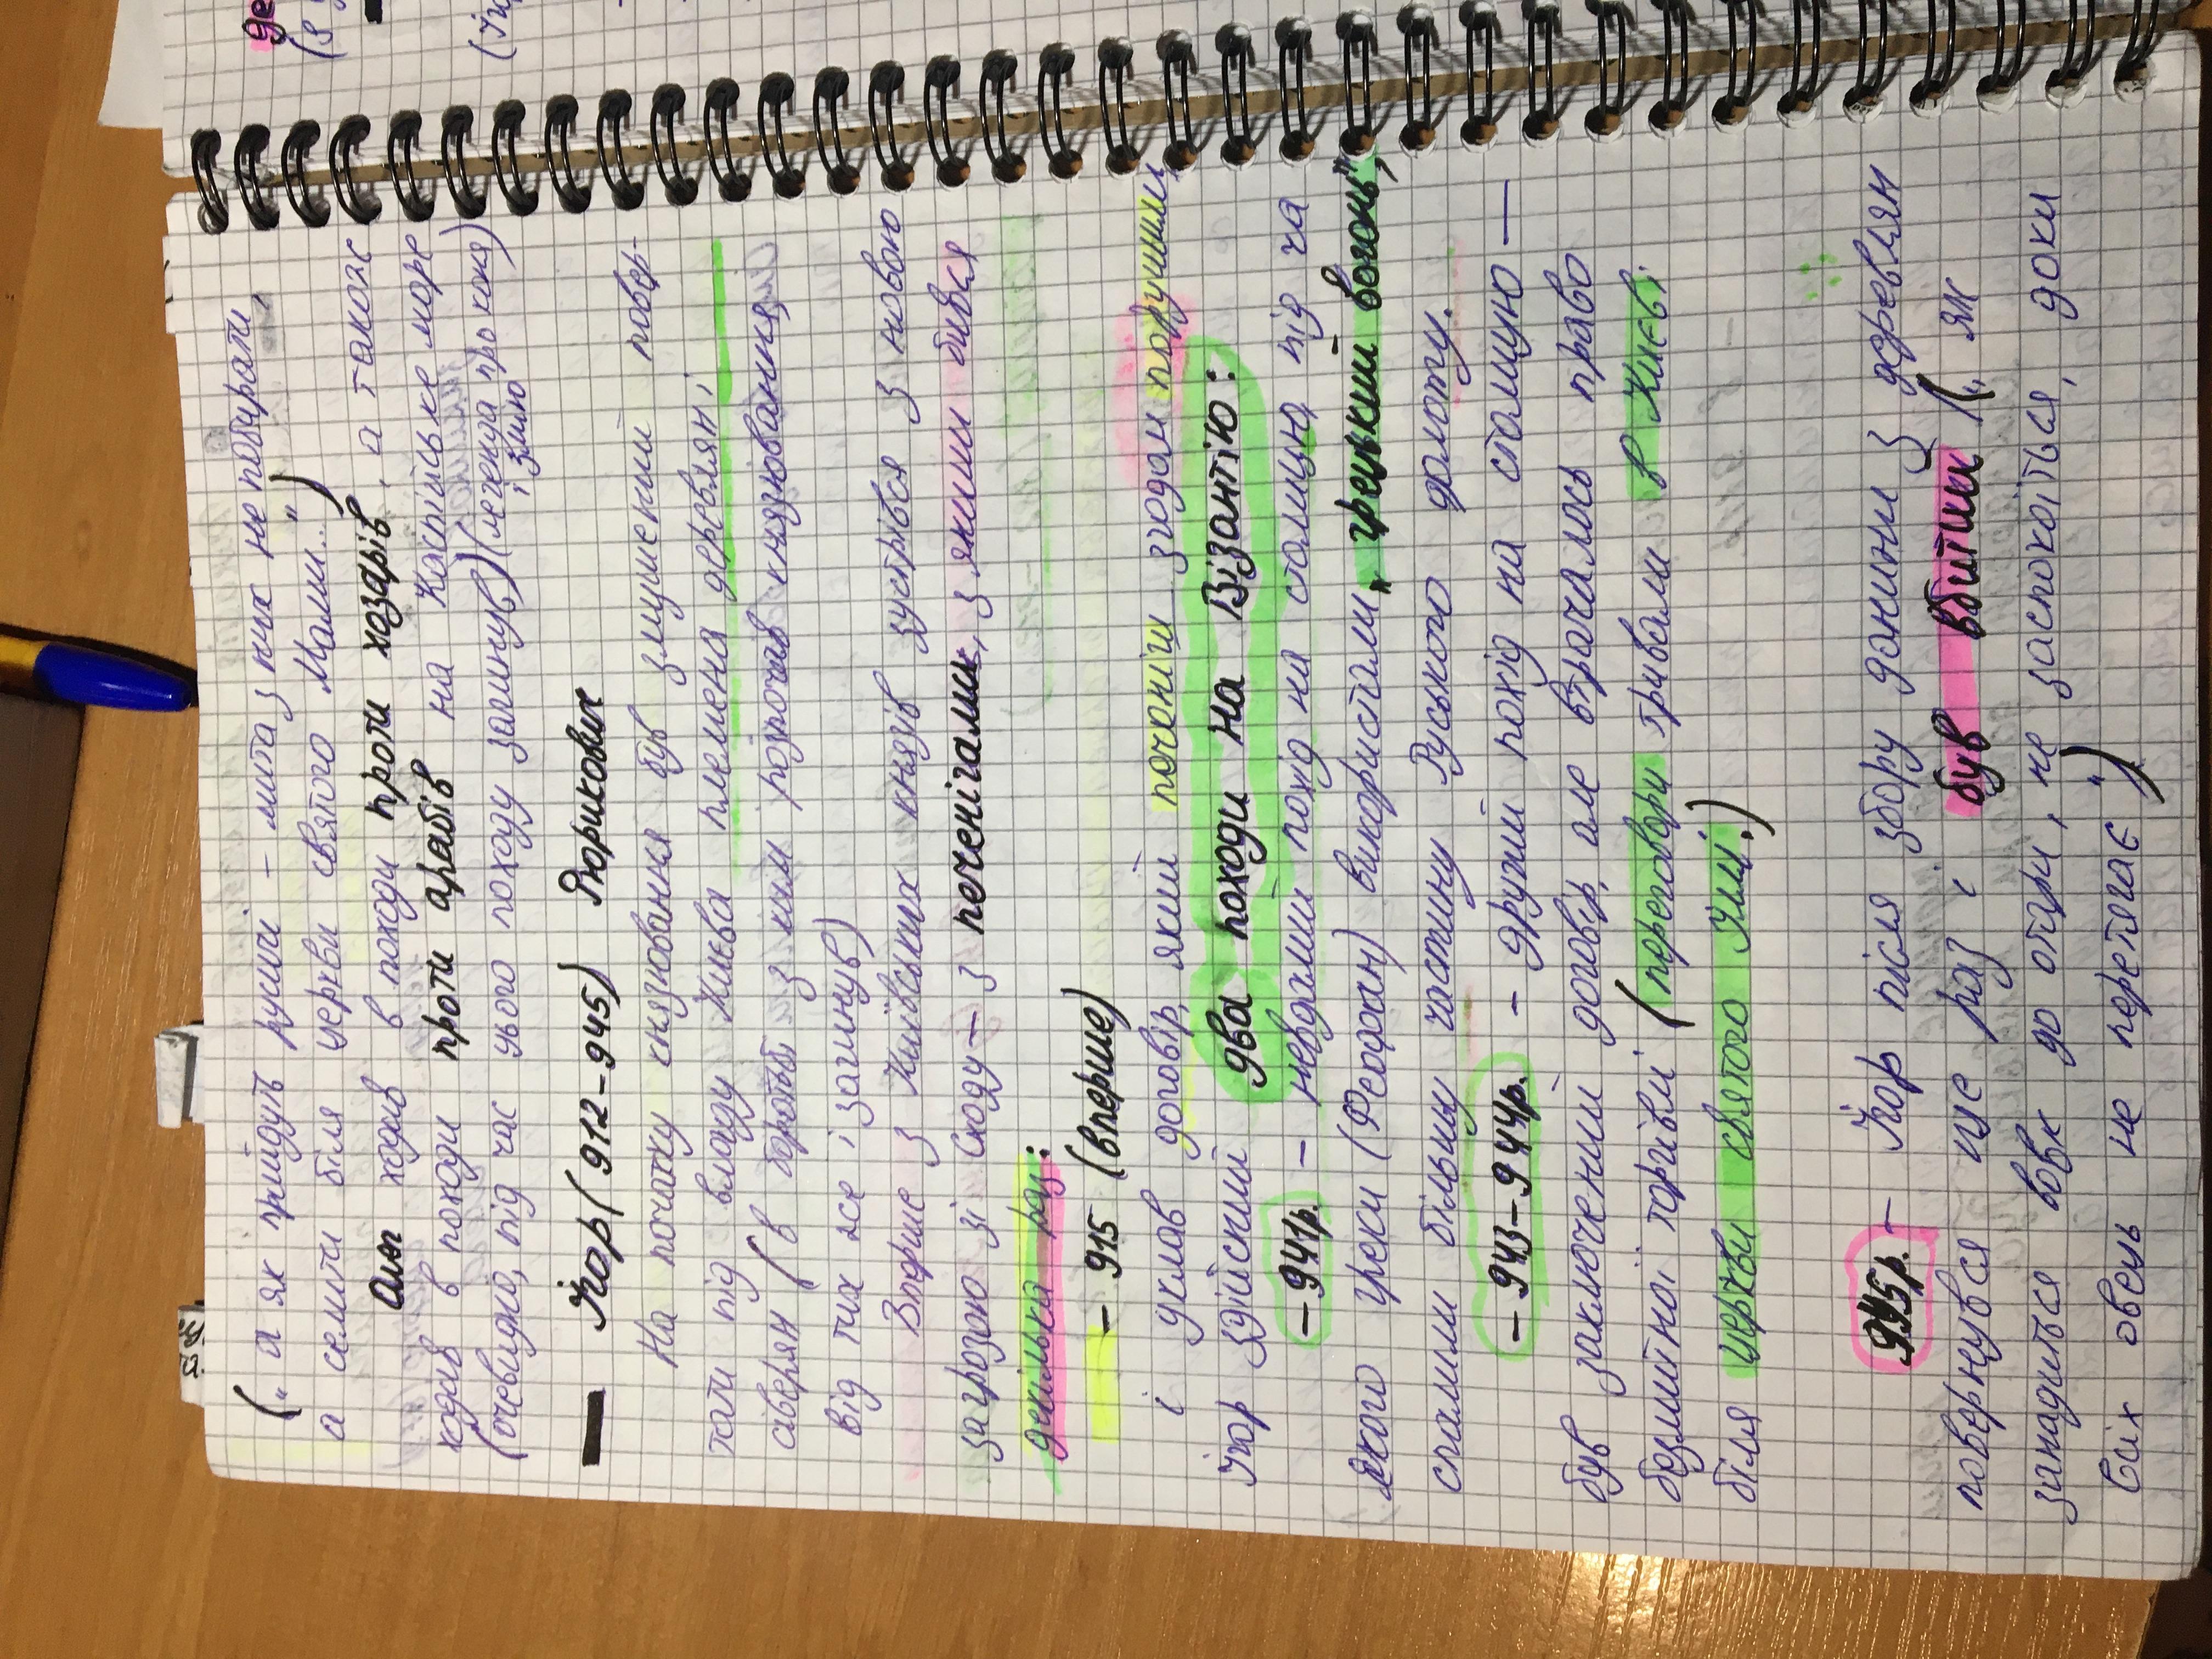 („а як прийдуть русичі – мита з них не побирати,
а селити біля церкви святого Мами...")
Олег ходив в походи проти хозарів, а також
ходив в походи проти арабів на Каспійське море
(очевидно, під час цього походу загинув) (легенда про коня)
і змію
– Ігор (912–945) Рюрикович
На початку князювання був змушений повер-
тати під владу Києва племена деревлян і
сіверян (в боротьбі з ким розпочав князювання,
від тих же і загинув)
Вперше з Київських князів зустрівся з новою
загрозою зі сходу – з печенігами, з якими бився
декілька раз:
– 915 (вперше)
і уклав договір, який печеніги згодом порушили,
Ігор здійснив два походи на Візантію:
– 941р. – невдалий похід на столицю, під ча
якого греки (Феофан) використали „грецький вогонь",
спалили більшу частину Руського флоту.
– 943–944р. – другий похід на столицю –
був заключений договір, але втрачалось право
безмитної торгівлі (переговори тривали в Києві
біля церкви святого Іллі.)
945р. – Ігор після збору данини з деревлян
повернувся ще раз і був вбитий („як
занадиться вовк до отари, не заспокоїться, доки
всіх овець не перетягає")